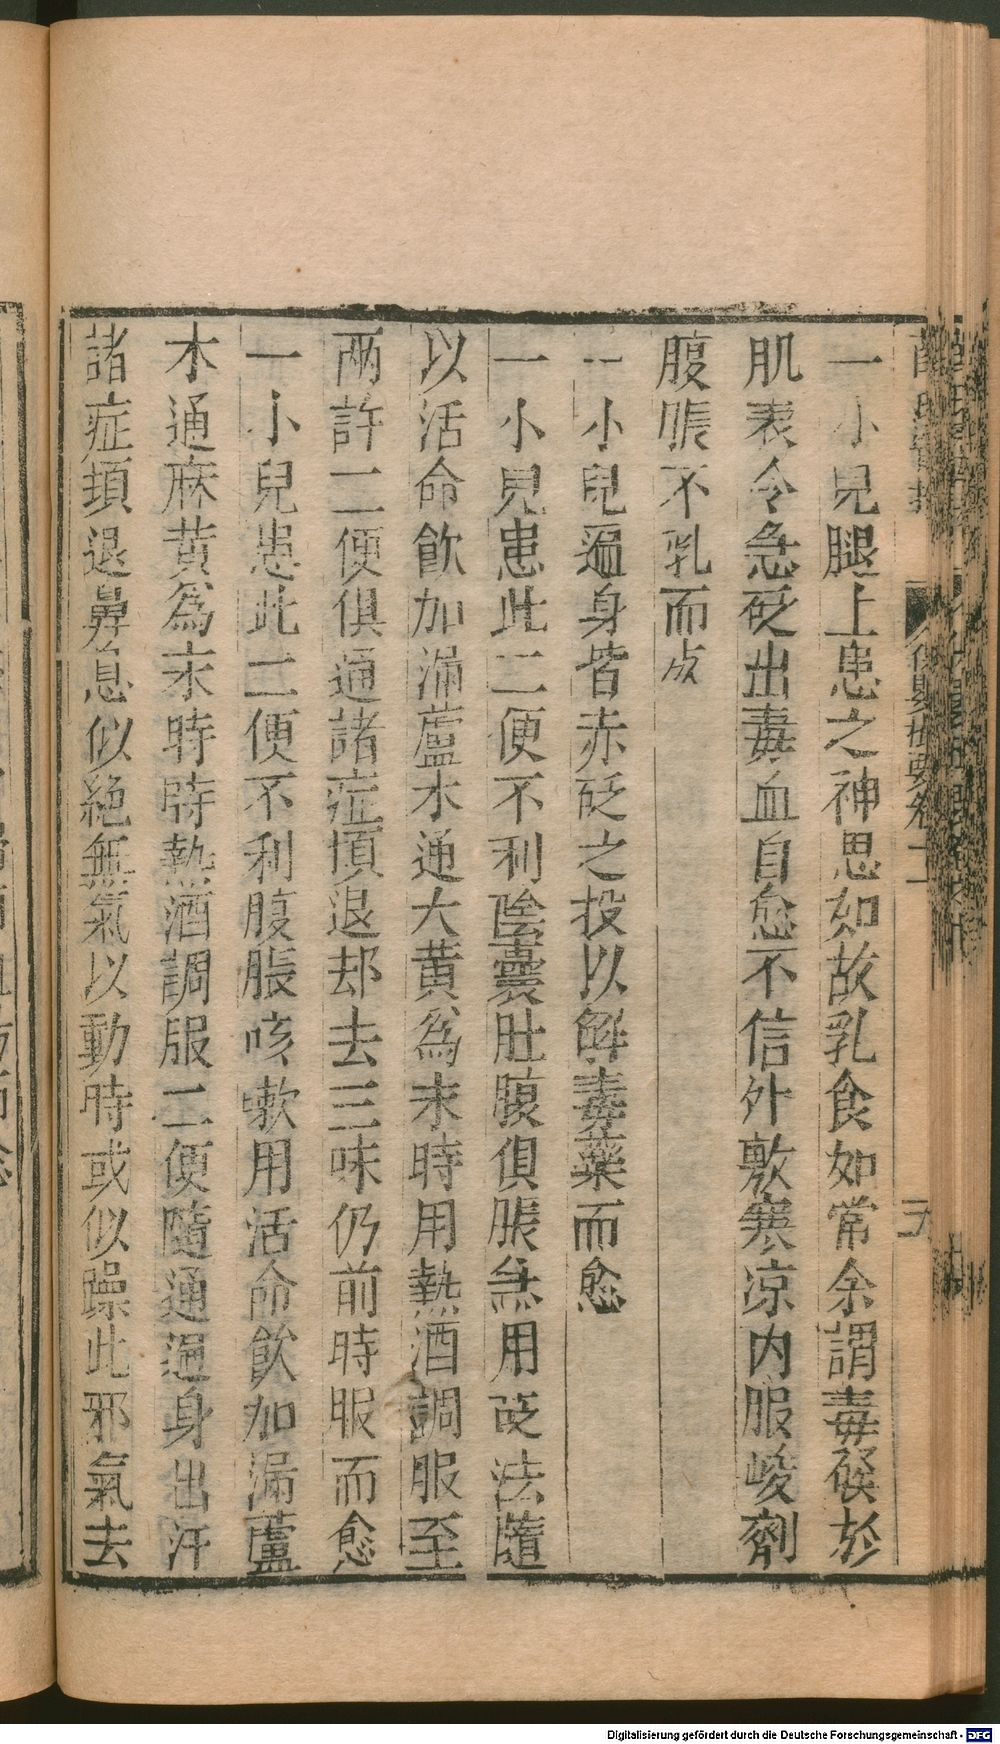 一小兒腿上患之神思如故乳食如常余謂毒發於
肌表令急砭出毒血自愈不信外敷寒凉内服峻劑
腹脹不乳而歿
一小兒遍身皆赤砭之投以解毒藥而愈
一小兒患此二便不利陰囊肚腹俱脹急用砭法隨
以活命飲加漏蘆木通大黄為末時用熱酒調服至
两許二便俱通諸症頓退却去三味仍前時服而愈
一小兒患此二便不利腹脹咳嗽用活命飲加漏蘆
木通麻黄為末時時熱酒調服二便隨通遍身出汗
諸症頓退鼻息似絶無氣以動時或似躁此邪氣去
Digitalisierung gefördert durch die Deutsche Forschungsgemeinschaft - DFG